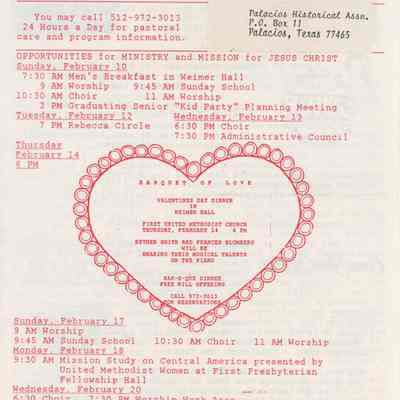 You may call 512-972-3013
24 Hours a Day for pastoral
care and program information.
Palacios Historical Assn.
P.O. Box 11
Palacios, Texas 77465
OPPORTUNITIES for MINISTRY and MISSION for JESUS CHRIST
Sunday, February 10
7:30 AM Men's Breakfast in Weimer Hall
9 AM Worship 9:45 AM Sunday School
10:30 AM Choir 11 AM Worship
2 PM Graduating Senior "Kid Party" Planning Meeting
Tuesday, February 12 Wednesday, February 13
7 PM Rebecca Circle 6:30 PM Choir
7:30 PM Administrative Council
Thursday
February 14
6 PM
BANQUET OF LOVE
VALENTINES DAY DINNER
IN
WEIMER HALL
FIRST UNITED METHODIST CHURCH
THURSDAY, FEBRUARY 14 6 PM
ESTHER SMITH AND FRANCES BLOMBERG
WILL BE
SHARING THEIR MUSICAL TALENTS
ON THE PIANO
BAR-B-QUE DINNER
FREE WILL OFFERING
CALL 972-3013
FOR RESERVATIONS
Sunday, February 17
9 AM Worship
9:45 AM Sunday School 10:30 AM Choir 11 AM Worship
Monday, February 18
9:30 AM Mission Study on Central America presented by
United Methodist Women at First Presbyterian
Fellowship Hall
Wednesday, February 20
6:30 Choir 7:30 PM Worship